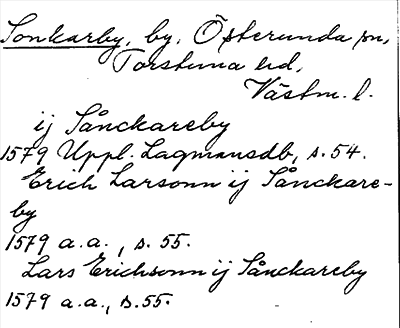 Sonkarby, by, Österunda sn,
Torstuna hd,
Västm. l.
ij Sånckareby
1579 Uppl. Lagmansdb, s. 54.
Erich Larsonn ij Sånckare-
by
1579 a.a., s. 55.
Lars Erichsonn ij Sånckareby
1579 a.a., s. 55.